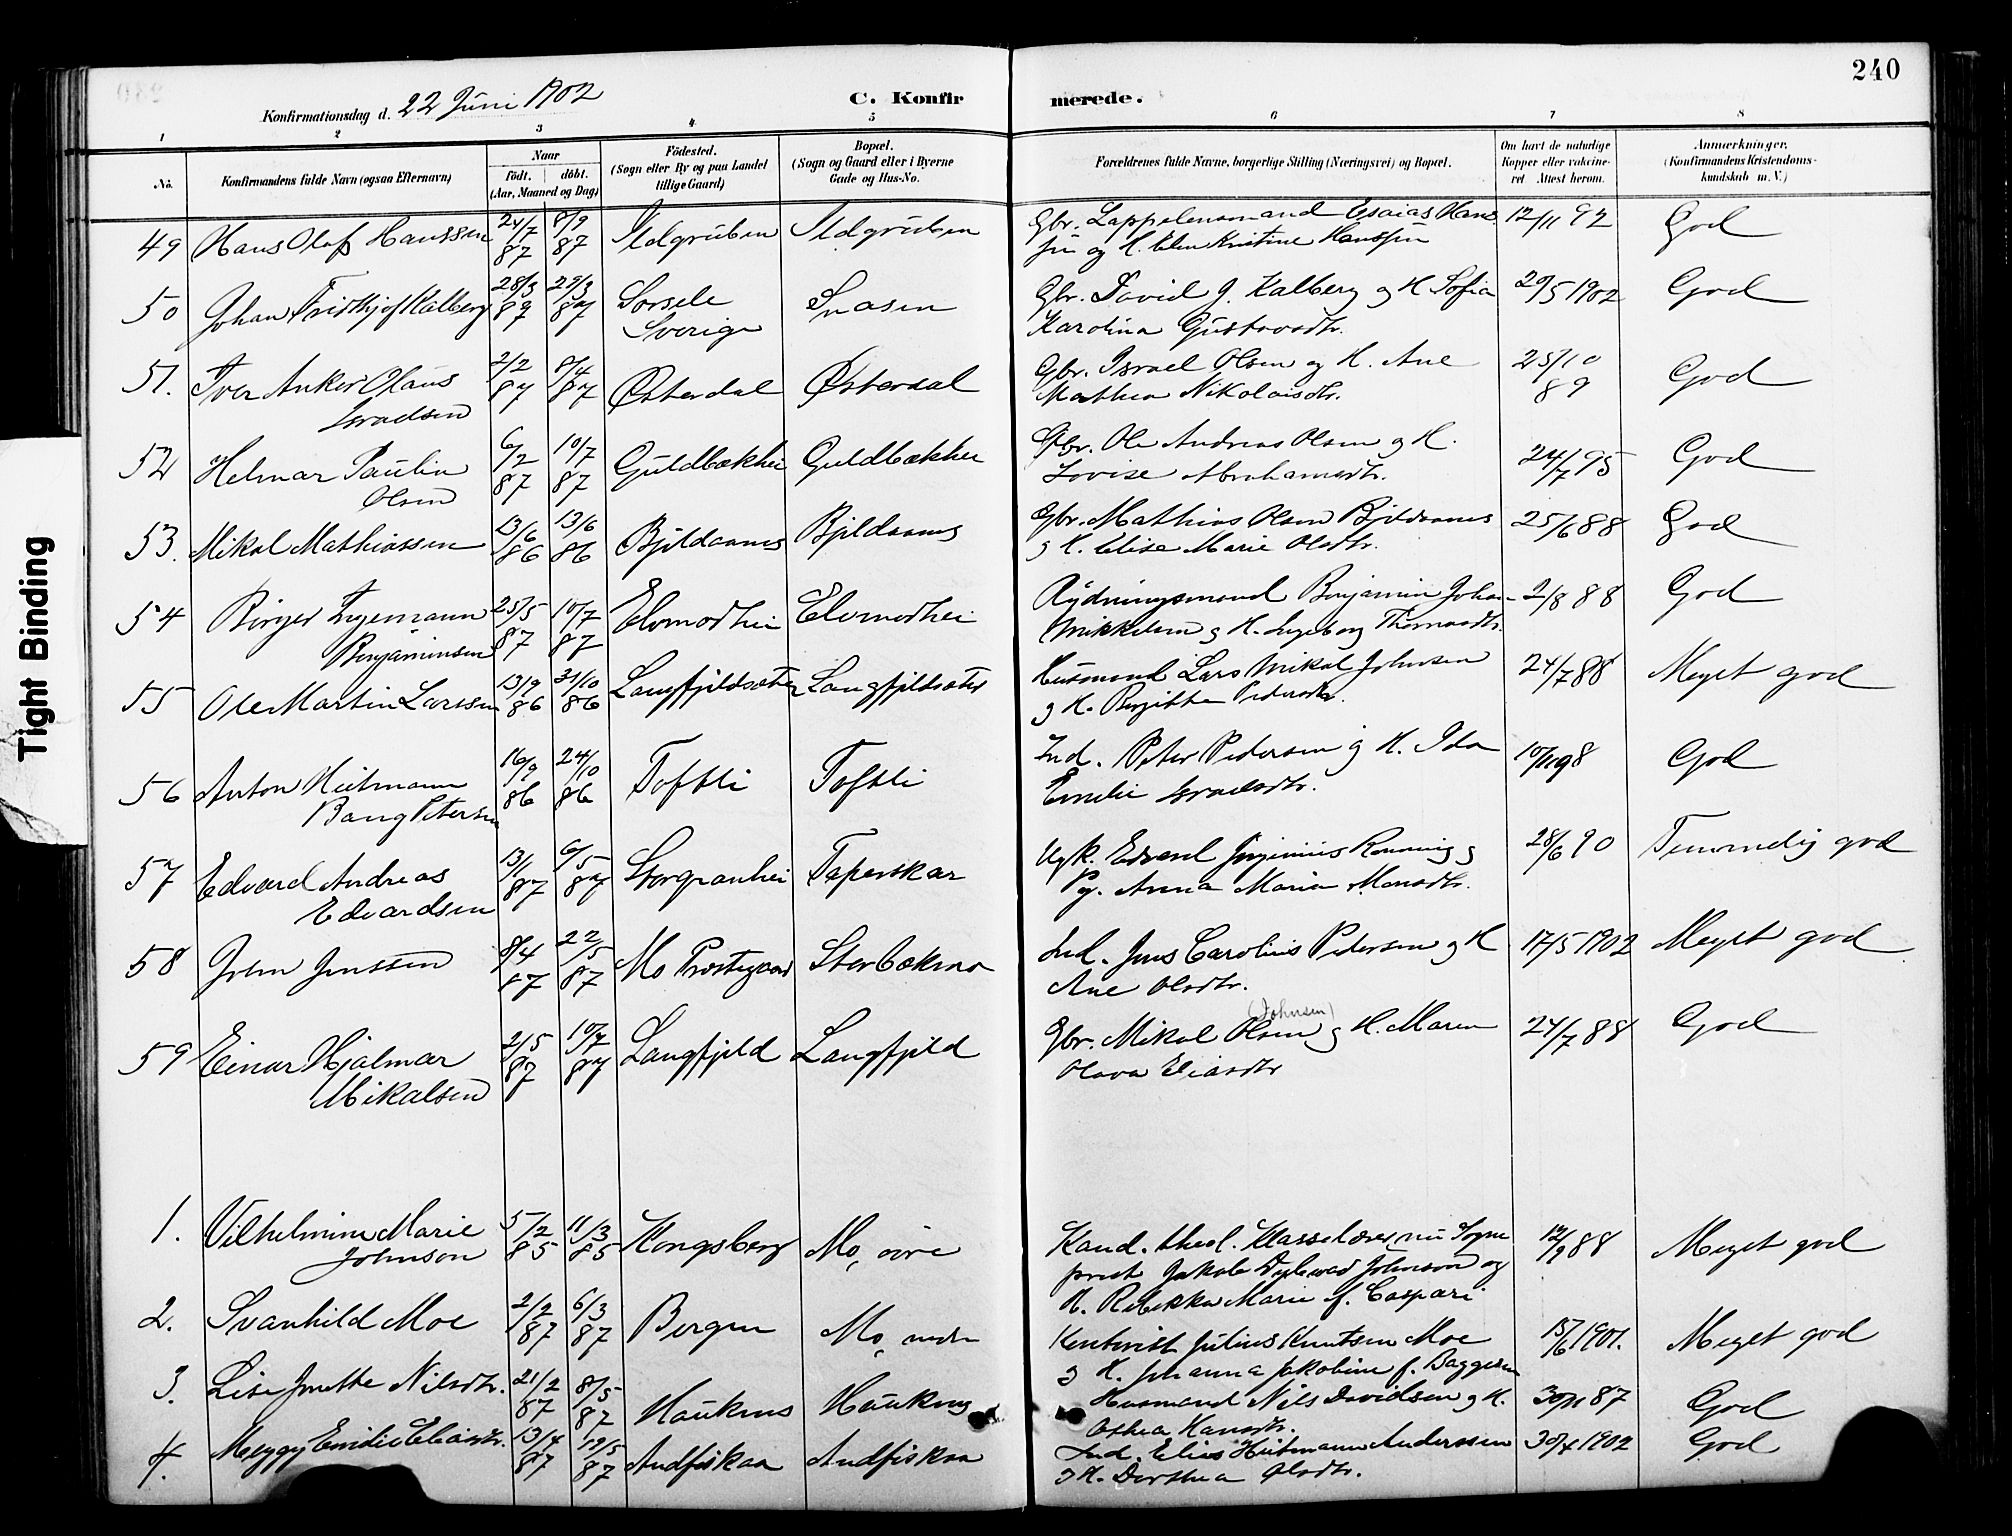 240
Konfirmationsdag d. 22 Juni 1902
C. Konfirmerede.
1 2 3 4 5 6 7 8
No.
Konfirmandens fulde Navn (ogsaa Efternavn)
Naar
født. døbt.
(Aar, Maaned og Dag)
Fødested.
(Sogn eller By og paa Landet
tillige Gaard)
Bopæl.
(Sogn og Gaard eller i Byerne
Gade og Hus-No.
Forældrenes fulde Navne, borgerlige Stilling (Næringsvei) og Bopæl.
Om havt de naturlige
Kopper eller vaccineret
Attest herom.
Anmærkninger.
(Konfirmandens Kristendomskundskab
m. V.)
49 Hans Olaf Hanssen 24/7 87 8/9 87 Ildgruben Ildgruben Gbr. Lappelensmand Esaias Hanssen
og H. Elen Kristine Hanssen 12/11 92 God
50 Johan Fridthjof Kalberg 28/3 87 29/3 87 Sorsele
Sverige Snasen Gbr. David J. Kalberg og H. Sofia
Karolina Gustavsdtr. 29/5 1902 God
51. Iver Anker Olaus
Israelsen 2/2 87 8/4 87 Østerdal Østerdal Gbr. Israel Olsen og H. Ane
Mathea Nikolaisdtr. 25/10
89 God
52 Helmar Paulin
Olsen 6/2 87 10/7 87 Guldbækhei Guldbækhei Gbr. Ole Andreas Olsen og H.
Lovise Abrahamsdtr. 24/7 95 God
53. Mikal Mathiassen 13/6 86 13/6 86 Bjildaanes Bjildaanes Gbr. Mathias Olsen Bjildaanes
g H. Elise Marie Olsdtr. 25/6 88 God
54 Birger Ingemann
Benjaminsen 25/5 87 10/7 87 Elvmodhei Elvmodhei Rydningsmand Benjamin Johan
Mikkelsen g H. Ingeborg Thomasdtr. 2/8 88 God
55 Ole Martin Larssen 13/9 86 31/10 86 Langfjildsæter Langfjildsæter Husmand Lars Mikal Johnsen
g H. Birgitte Pedersdtr. 24/7 88 Meget god
56 Anton Heitmann
Bang Petersen 16/9 86 24/10 86 Toftli Toftli Ind. Peter Pedersen g H. Ida
Emelie Israelsdtr. 10/11 98 God
57 Edvard Andreas
Edvardsen 13/1 87 6/5 87 Storgranhei Taperskar Ugk. Edvard Rønning g
Pg. Anna Maria Monsdtr. 28/6 90 Temmelig god
58 Jrem Jenssen 8/4 87 22/5 87 Mo Prestegaard Storbækmo Ind. Jens Carolius Pedersen g H
Ane Olsdtr. 17/5 1902 Meget god
59 Einar Hjalmar
Mikalsen 2/5 87 10/7 87 Langfjeld Langfjeld (Johnsen)
Gbr. Mikal Olsen g H. Maren
Olava Eliasdtr 24/7 88 God
1. Vilhelmine Marie
Johnson 5/2 85 11/3 85 Kongsberg Mo, øvre Kand. theol. Klasselærer, nu Sogneprest
Jakob Johnson og
H. Rebekka Marie f. Caspari 12/9 88 Meget god
2. Svanhild Moe 2/2 87 6/3 87 Bergen Mo, nedre Kontorist Julius Knutsen Moe
g H. Johanna Jakobine f. Baggesen 15/6 1901. Meget god
3. Lise Jonette Nilsdtr. 21/2 87 8/5 87 Haukenes Haukenes Husmand Nils Davidsen g H.
Oshea Hansdtr. 30/11 87 God
4. Meyyy Emilie Eliasdtr. 13/4 87 19/5 87 Andfiskaa Andfiskaa Ind. Elias Heitmann Anderssen
g H. Dorthea Olsdtr. 30/4 1902 God
Tight Binding